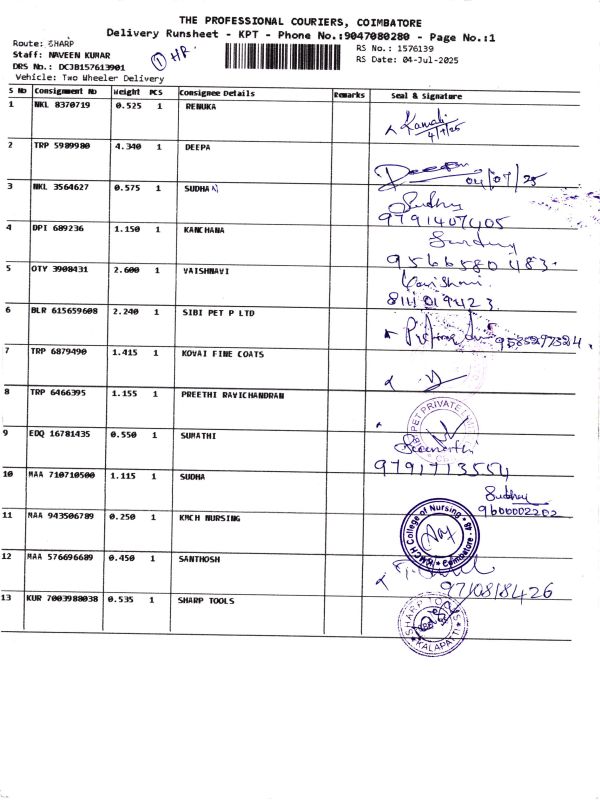 THE PROFESSIONAL COURIERS, COIMBATORE
Delivery Runsheet - KPT - Phone No.:9047080280 - Page No.:1
Route: SHARP
Staff: NAVEEN KUMAR
DRS No.: DCJB157613901
Vehicle: Two Wheeler Delivery
① HR
RS No.: 1576139
RS Date: 04-Jul-2025
S No Consignment No Weight PCS Consignee Details Remarks Seal & Signature
1 NKL 8370719 0.525 1 RENUKA
4/7/25
2 TRP 5989980 4.340 1 DEEPA
Deepa 04/07/25
3 NKL 3564627 0.575 1 SUDHAN
Sudhu
9791407405
4 DPI 689236 1.150 1 KANCHANA
9566580483
5 OTY 3908431 2.600 1 VAISHNAVI
Vaishnavi
814019423
6 BLR 615659608 2.240 1 SIBI PET P LTD
9585297324
7 TRP 6879490 1.415 1 KOVAI FINE COATS
8 TRP 6466395 1.155 1 PREETHI RAVICHANDRAN
PET PRIVATE
9 EDQ 16781435 0.550 1 SUMATHI
Sumathi
9791713554
10 MAA 710710500 1.115 1 SUDHA
Sudha
9600002202
11 MAA 943506789 0.250 1 KMCH NURSING
KMCH College of Nursing * Coimbatore - 48 *
12 MAA 576696689 0.450 1 SANTHOSH
9710818426
13 KUR 7003988038 0.535 1 SHARP TOOLS
SHARP TOOLS
KALAPATTI